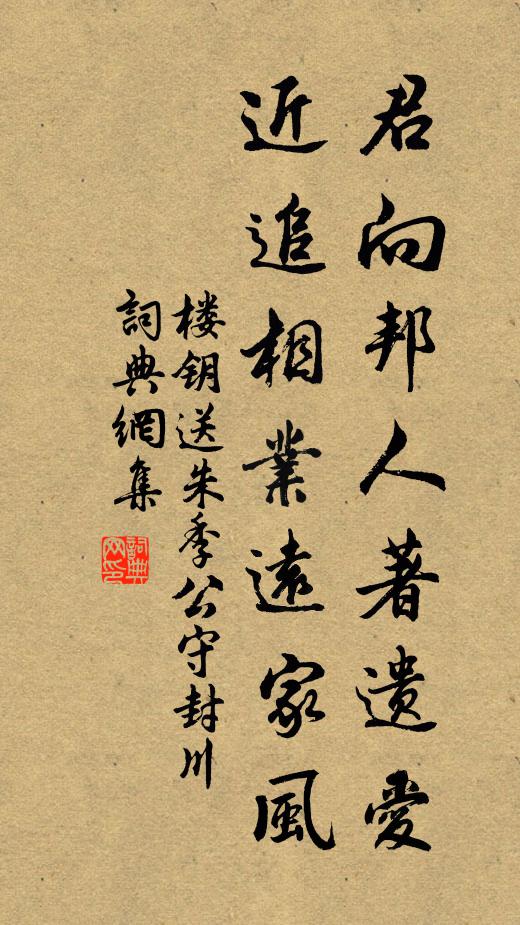 君向邦人著遗爱
近追相業遠家風
楼钥送朱季公守封川
詞典網集
詞典网印